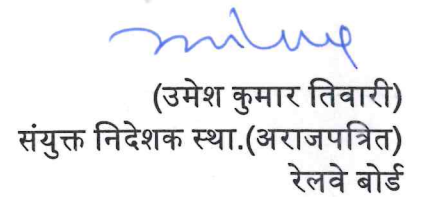 (उमेश कुमार तिवारी)
संयुक्त निदेशक स्था.(अराजपत्रित)
रेलवे बोर्ड